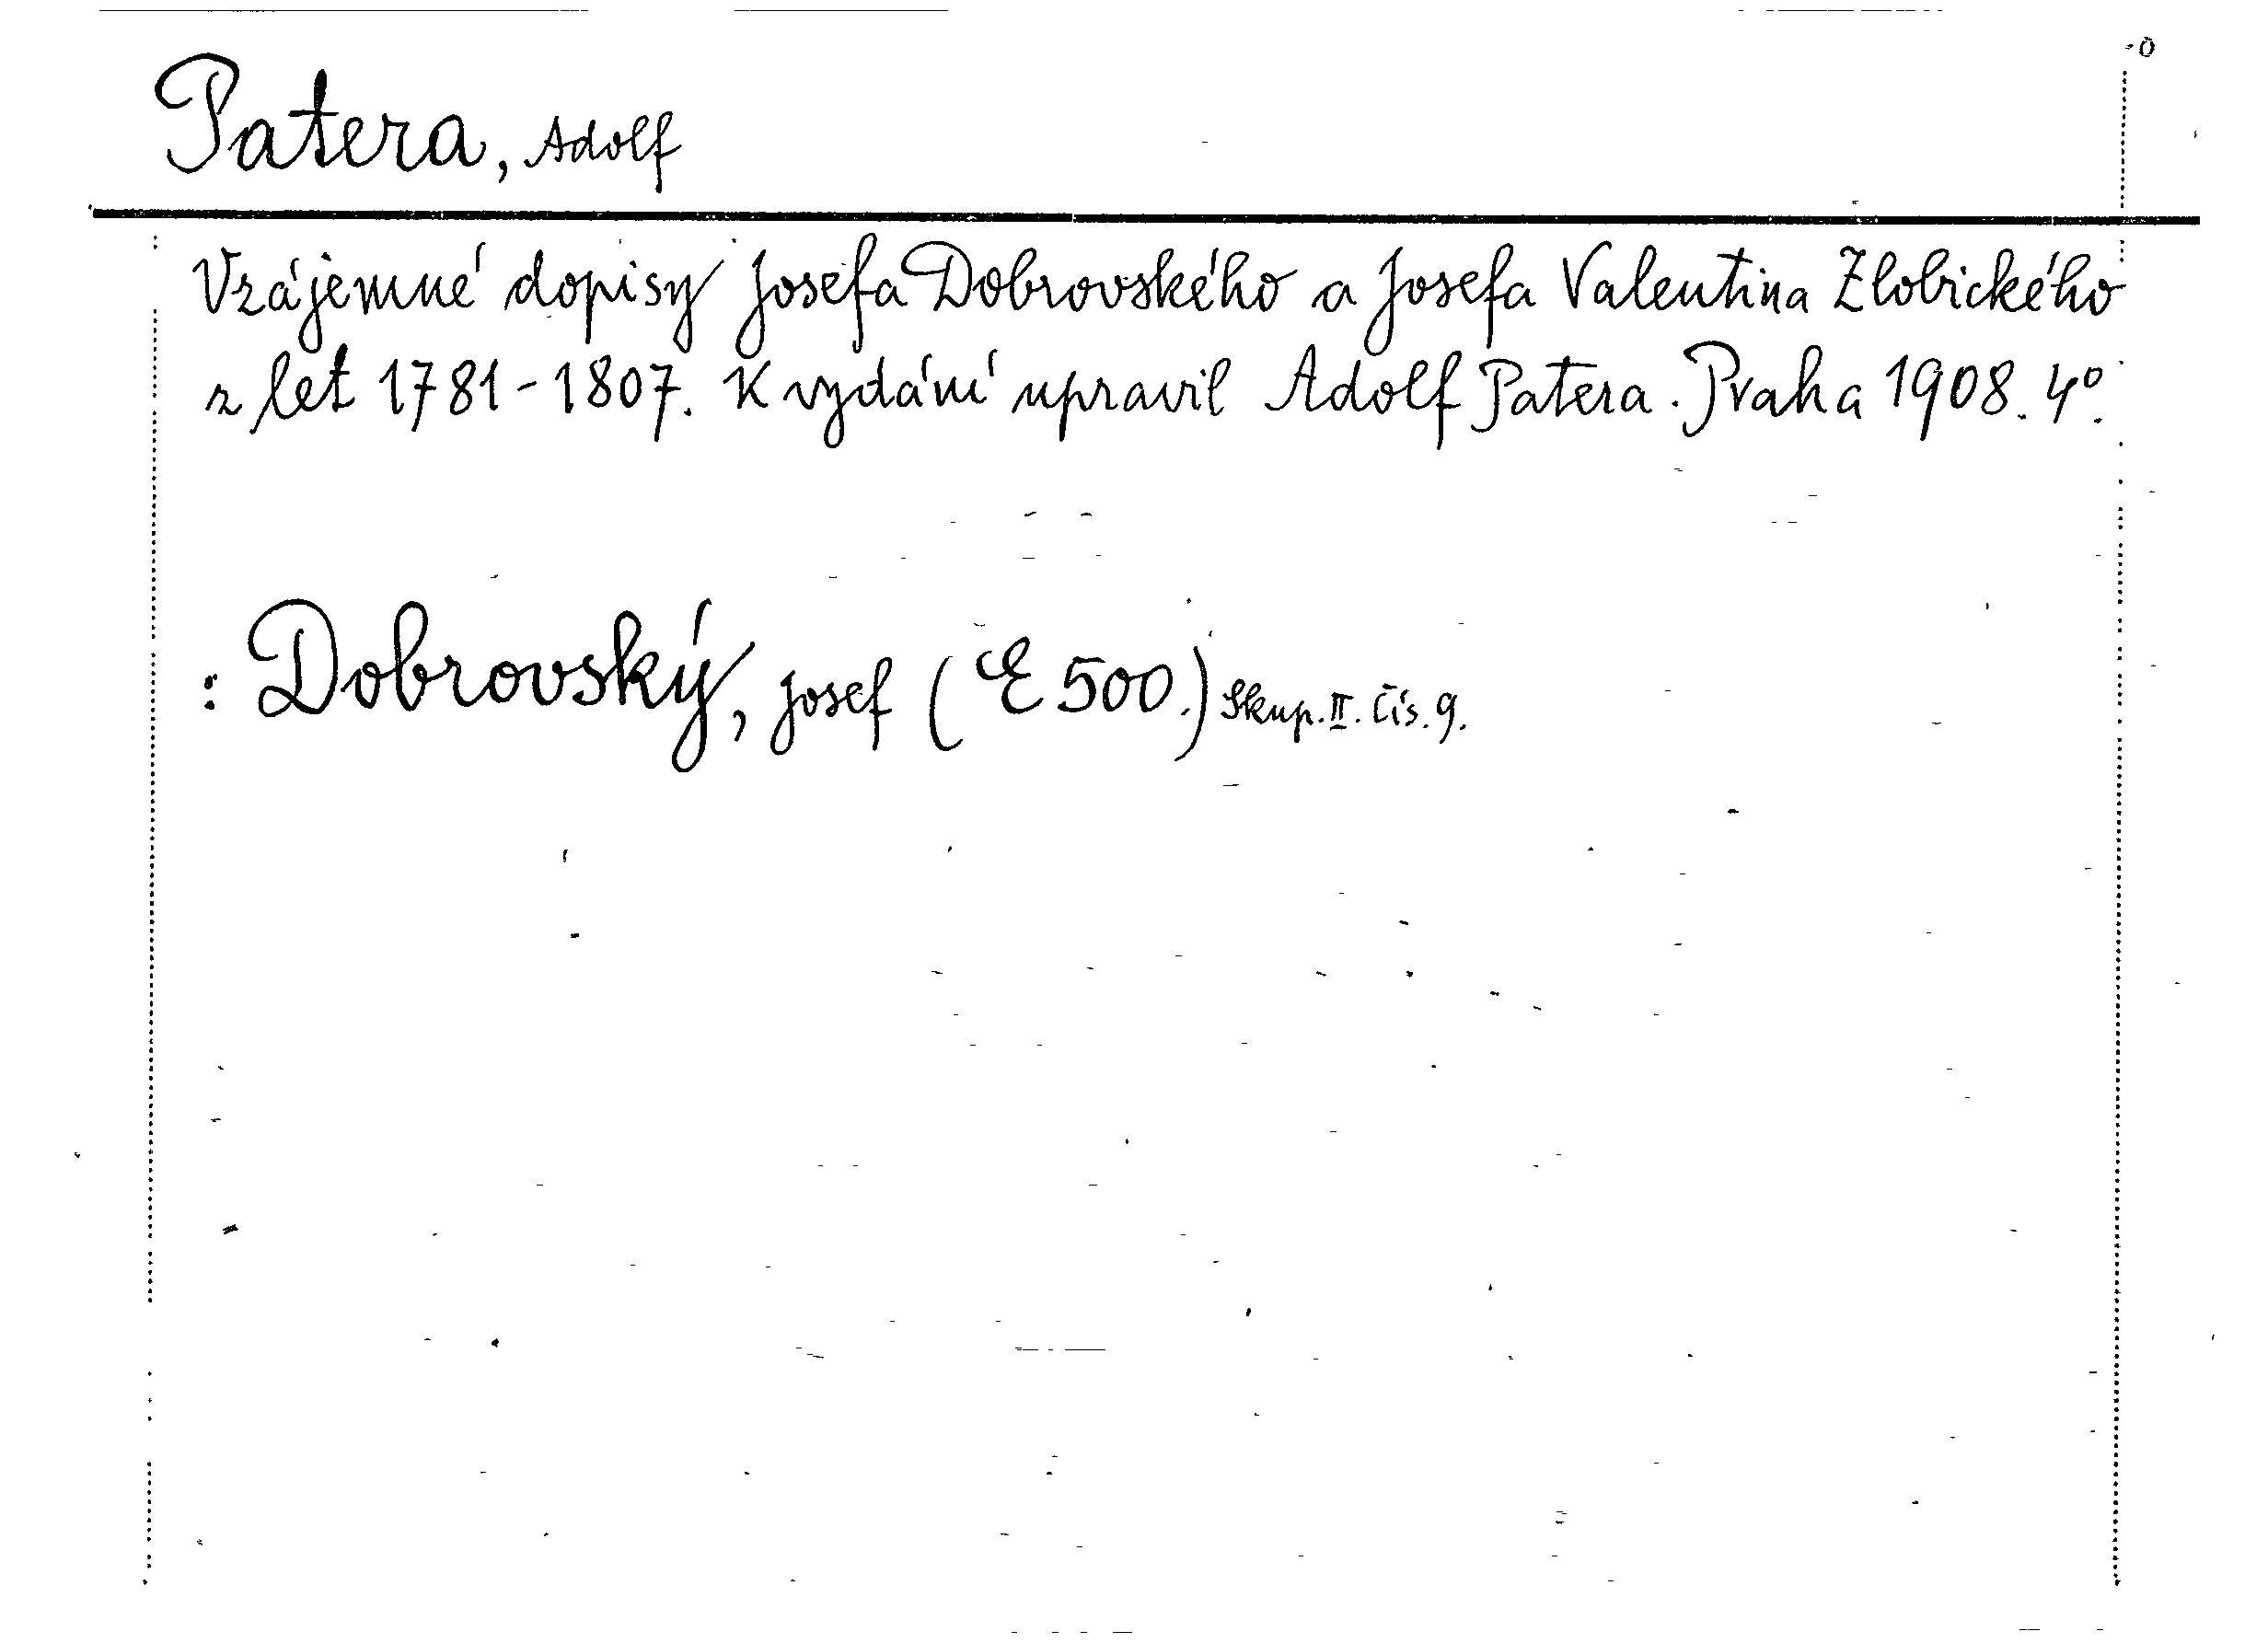 Patera, Adolf
Vzájemné dopisy Josefa Dobrovského a Josefa Valentina Zlobického
z let 1781-1807. K vydání upravil Adolf Patera. Praha 1908. 4°.
: Dobrovský, Josef (E 500.) Skup. II. čís. 9.